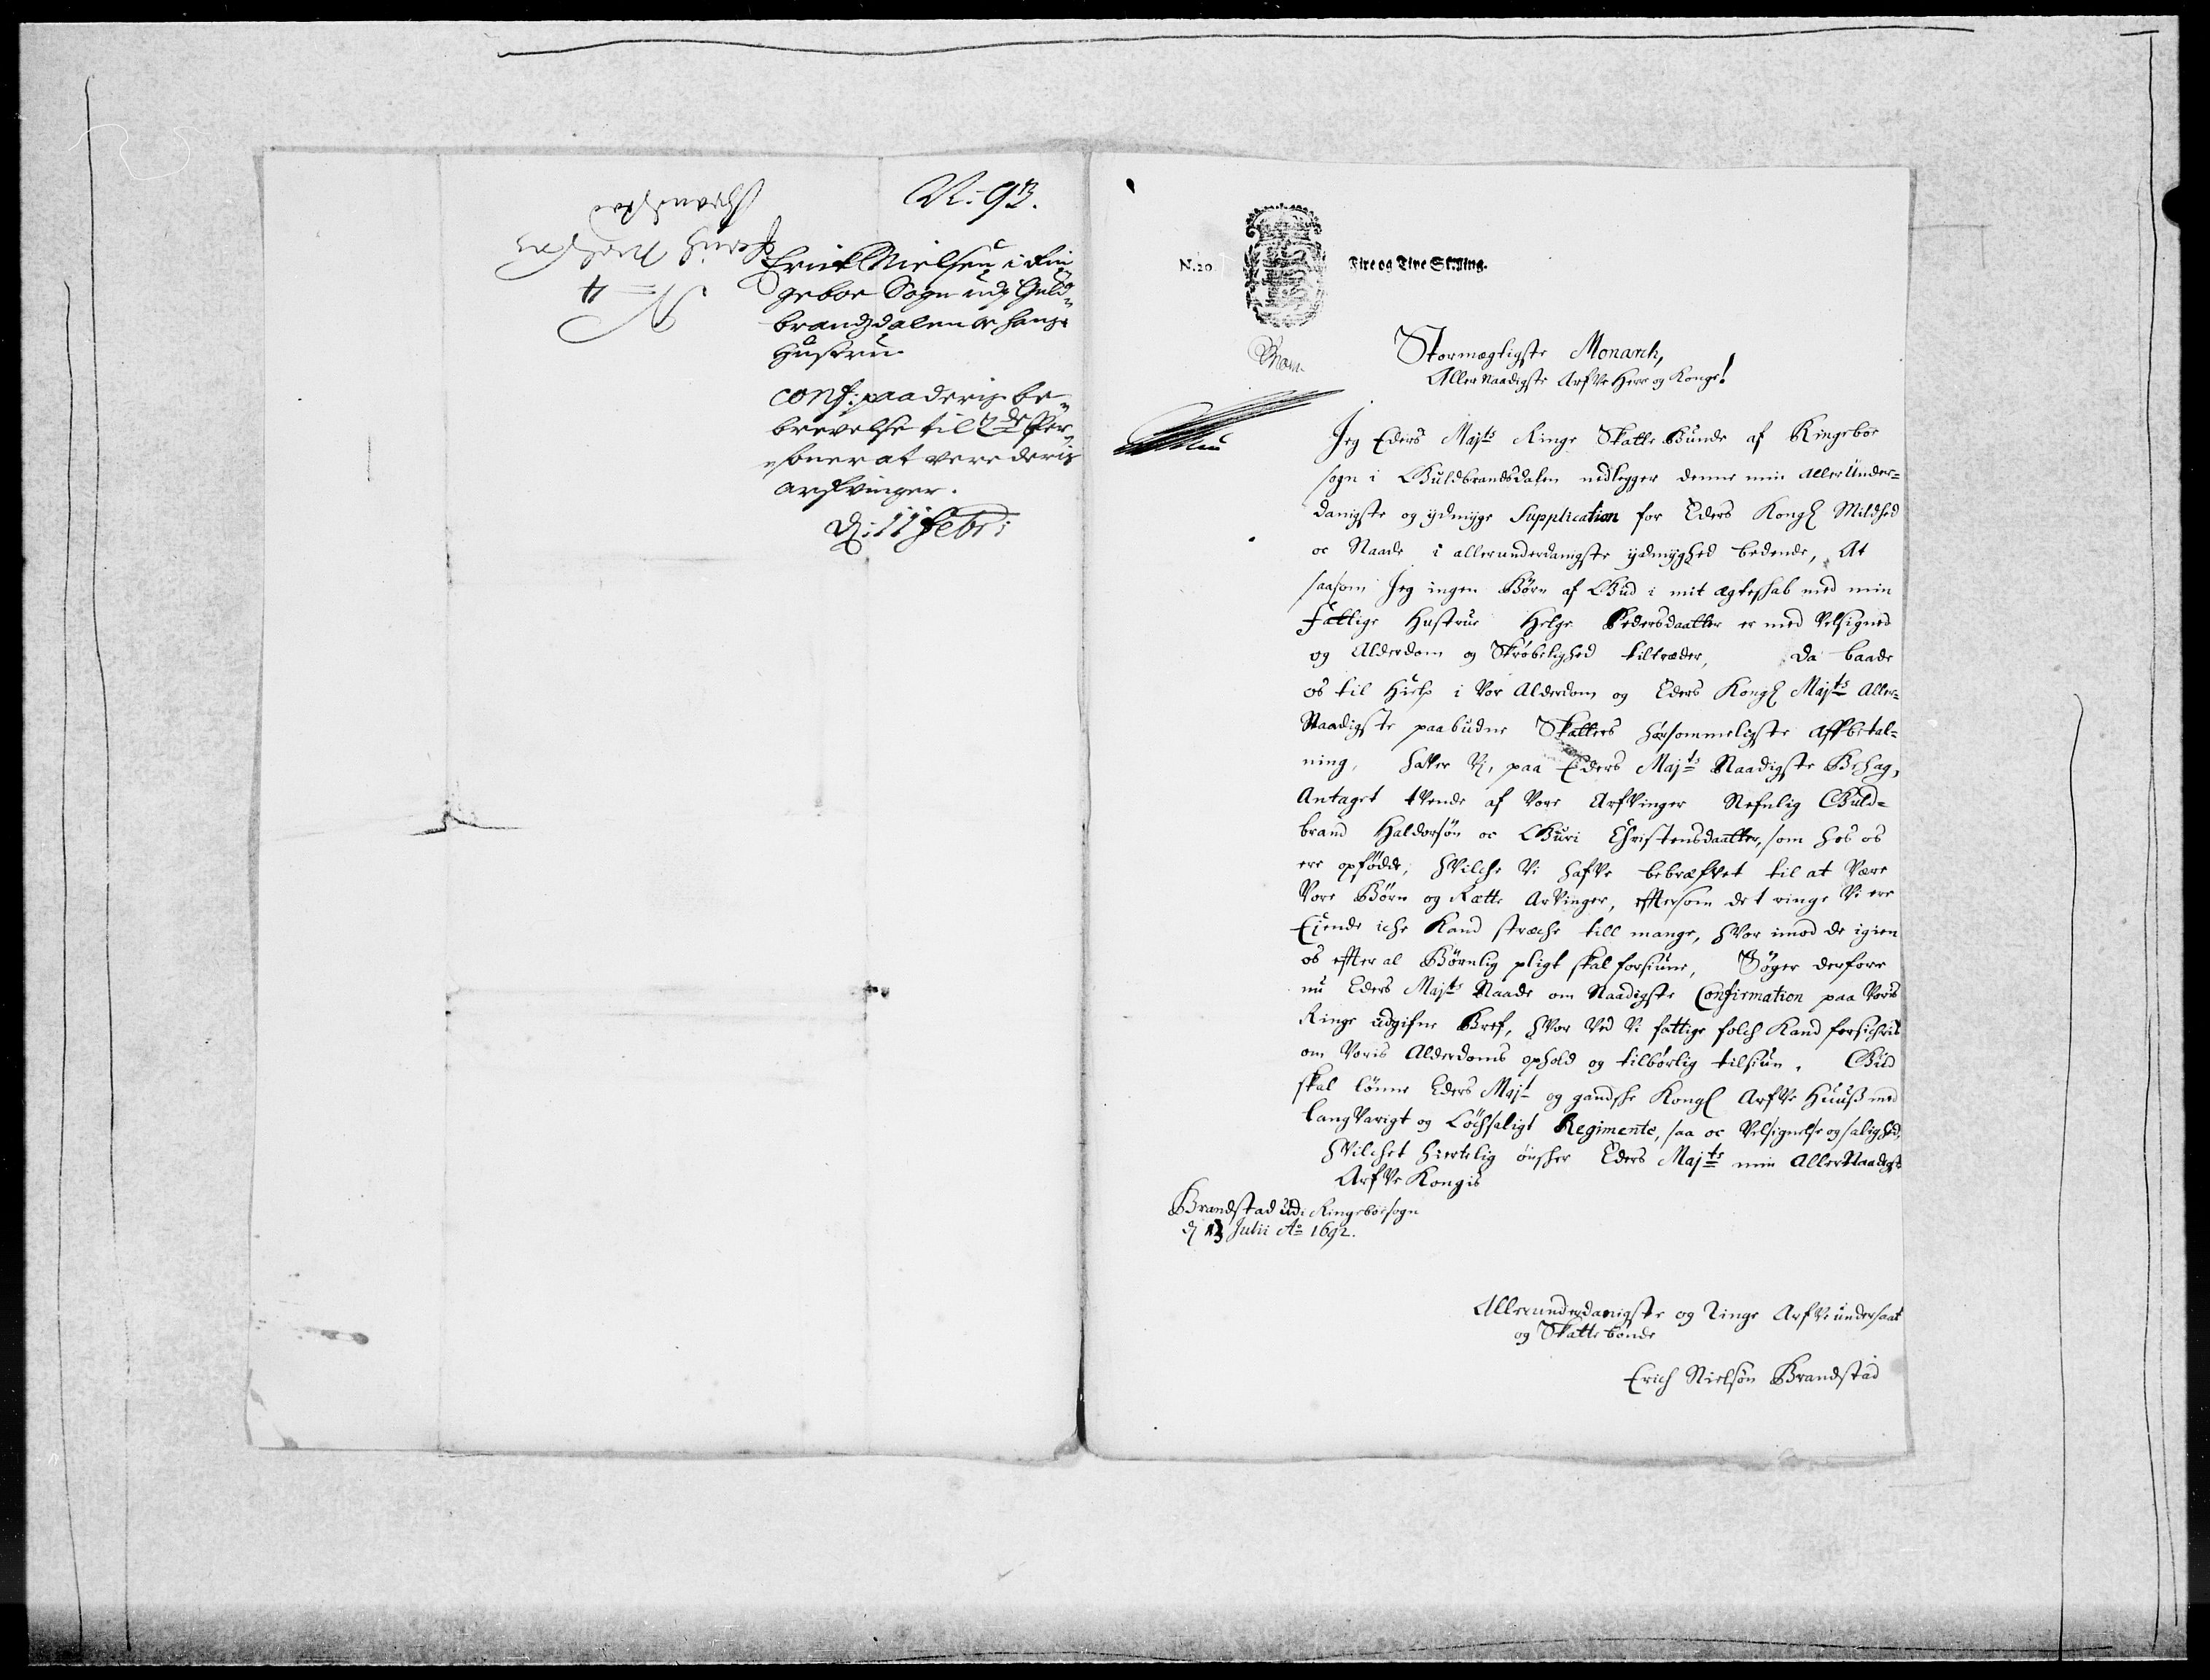 N. 93.
Erick Nielsen i Rin
geboe Sogn udj Guld„
brandzdalen oc hans
Hustrue
conf: paa deris be„
brevelse til 2de Per„
„soner at vere deris
arfvinger.
D: 11 Febr:
Brandstad
Erich Nielsøn
N= 4
N. 20
Fire og Tive Skilling.
Stormægtigste Monarch,
Aller Naadigste Arfve Herr og Konge!
Jeg Eders Majts Ringe Skatte Bunde af Ringeboe
sogn i Guldbrandsdalen nedlegger denne min AllerUnder=
danigste og ydmyge Supplication for Eders Kongl Mildhed
oc Naade i allerunderdanigste ydmyghed bedende, At
saasom Jeg ingen Børn af Gud i mit Egteskab med min
Fattige Hustrue Helge Pedersdaatter er med Velsignet
og Alderdom og Skrøbelighed tiltræder, Da baade
os til Hielp i Vor Alderdom og Eders Kongl Majts Aller=
Naadigste paabudne Skatters hørsommeligste Affbetal=
ning, hafver Vj, paa Eders Majts Naadigste Behag,
Antaget tvende af Vore Arfvinger Nefnlig Guld=
brand Haldorsøn oc Guri Christensdaatter, som hos os
ere opfødde, hvilche Vi hafve bebrefvet til at Være
Vore Børn og Rette Arvinger, eftersom det ringe Vi ere
Eiende iche Kand streche till mange, hvor imod de igien
os efter al Børnlig pligt skal forsiune, Søger derfore
nu Eders Majts Naade om Naadigste Confirmation paa Voris
Ringe udgifne Bref, hvor Ved Vi fattige folch Kand forsichris
om Voris Alderdoms ophold og tilbørlig tilsiun. Gud
skal lønne Eders Majt og gandske Kongl Arfve Huuß med
langvarigt og Løchsaligt Regimente, saa oc Velsignelse og salighed,
hvilchet hiertelig ønsher Eders Majts min AllerNaadigst
Arfve Kongis
Brandstad udi Ringeboe sogn
d 13 Julii Ao 1692.
Allerunderdanigste og Ringe Arfve undersaat
og Skatte bonde
Erich Nielsøn Brandstad